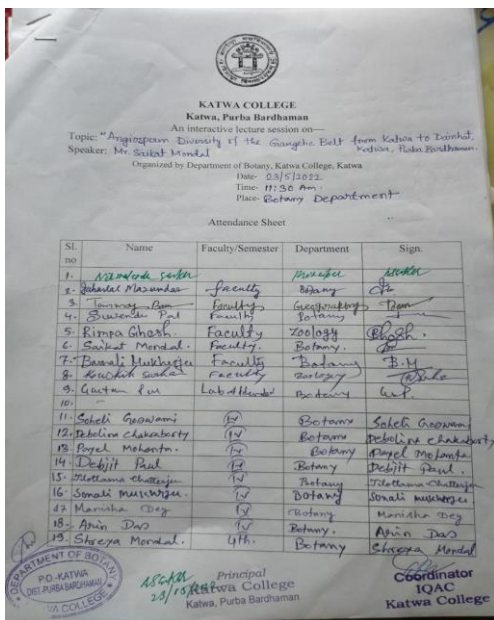 KATWA COLLEGE
Katwa, Purba Bardhaman
An interactive lecture session on—
Topic: "Angiosperm Diversity of the Gangetic Belt from Katwa to Dainhat,
Speaker: Mr. Saikat Mondal Katwa, Purba Bardhaman.
Organized by Department of Botany, Katwa College, Katwa
Date- 23/5/2022
Time- 11:30 Am.
Place- Botany Department
Attendance Sheet
Sl. no Name Faculty/Semester Department Sign.
1. Principal
2. faculty Botany
3. Faculty Geography
4. Suvendu Pal Faculty Botany
5. Rimpa Ghosh. Faculty Zoology Ghosh.
6. Saikat Mondal. Faculty. Botany.
7. Bamali Mukherjee Faculty Botany B.M
8. Koushik Faculty Zoology
9. Gautam Lab Attendant Botany
10.
11. Soheli Goswami IV Botany Soheli Goswami
12. Debolina Chakraborty IV Botany Debolina Chakraborty
13. Payel Mohanta. IV Botany Payel Mohanta
14. Debjit Paul IV Botany Debjit Paul.
15. Tilottama Chatterjee IV Botany Tilottama Chatterjee
16. Sonali Mukherjee. IV Botany Sonali Mukherjee
17 Manisha Dey IV Botany Manisha Dey
18. Apin Das IV Botany. Apin Das
19. Shreya Mondal. 4th. Botany Shreya Mondal
DEPARTMENT OF BOTANY
P.O.-KATWA
DIST-PURBA BARDHAMAN
KATWA COLLEGE
Principal
Katwa College
Katwa, Purba Bardhaman
Coordinator
IQAC
Katwa College